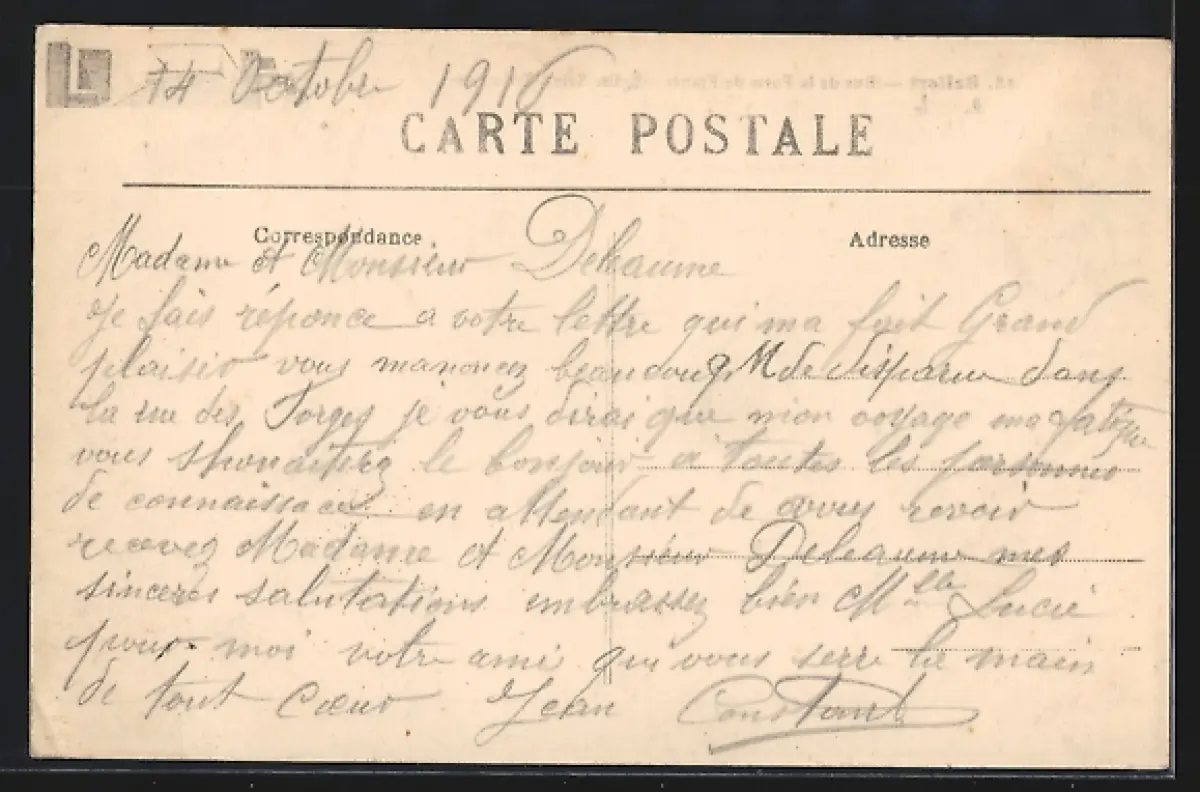 14 Octobre 1916
CARTE POSTALE
Correspondance
Adresse
Madame et Monsieur Deheaume
Je fais réponce a votre lettre qui ma fait Grand
plaisir vous manoncez beaucoup M de disparue dans
la rue des Forges je vous dirai que mon voyage ma
vous le bonjour a toutes les personnes
de connaissace en attendant de vous revoir
recevez Madame et Monsieur Deheaume mes
sinceres salutations embrassez bien Mlle Lucie
pour moi votre ami qui vous serre la main
de tout cœur Jean Constant